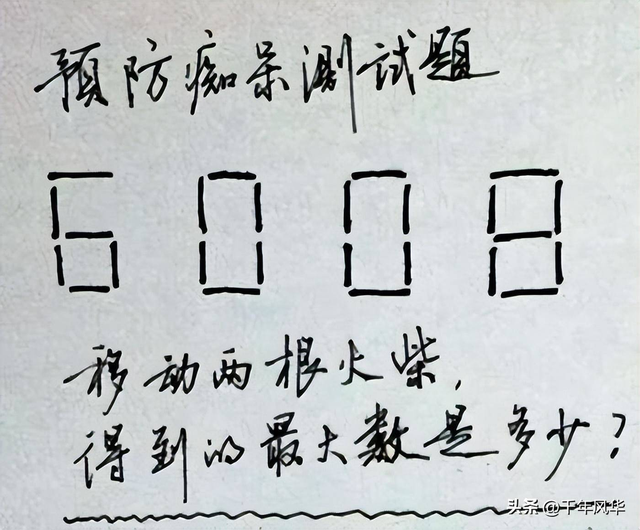 预防痴呆测试题
6008
移动两根火柴，
得到的最大数是多少？
头条 @千年风华